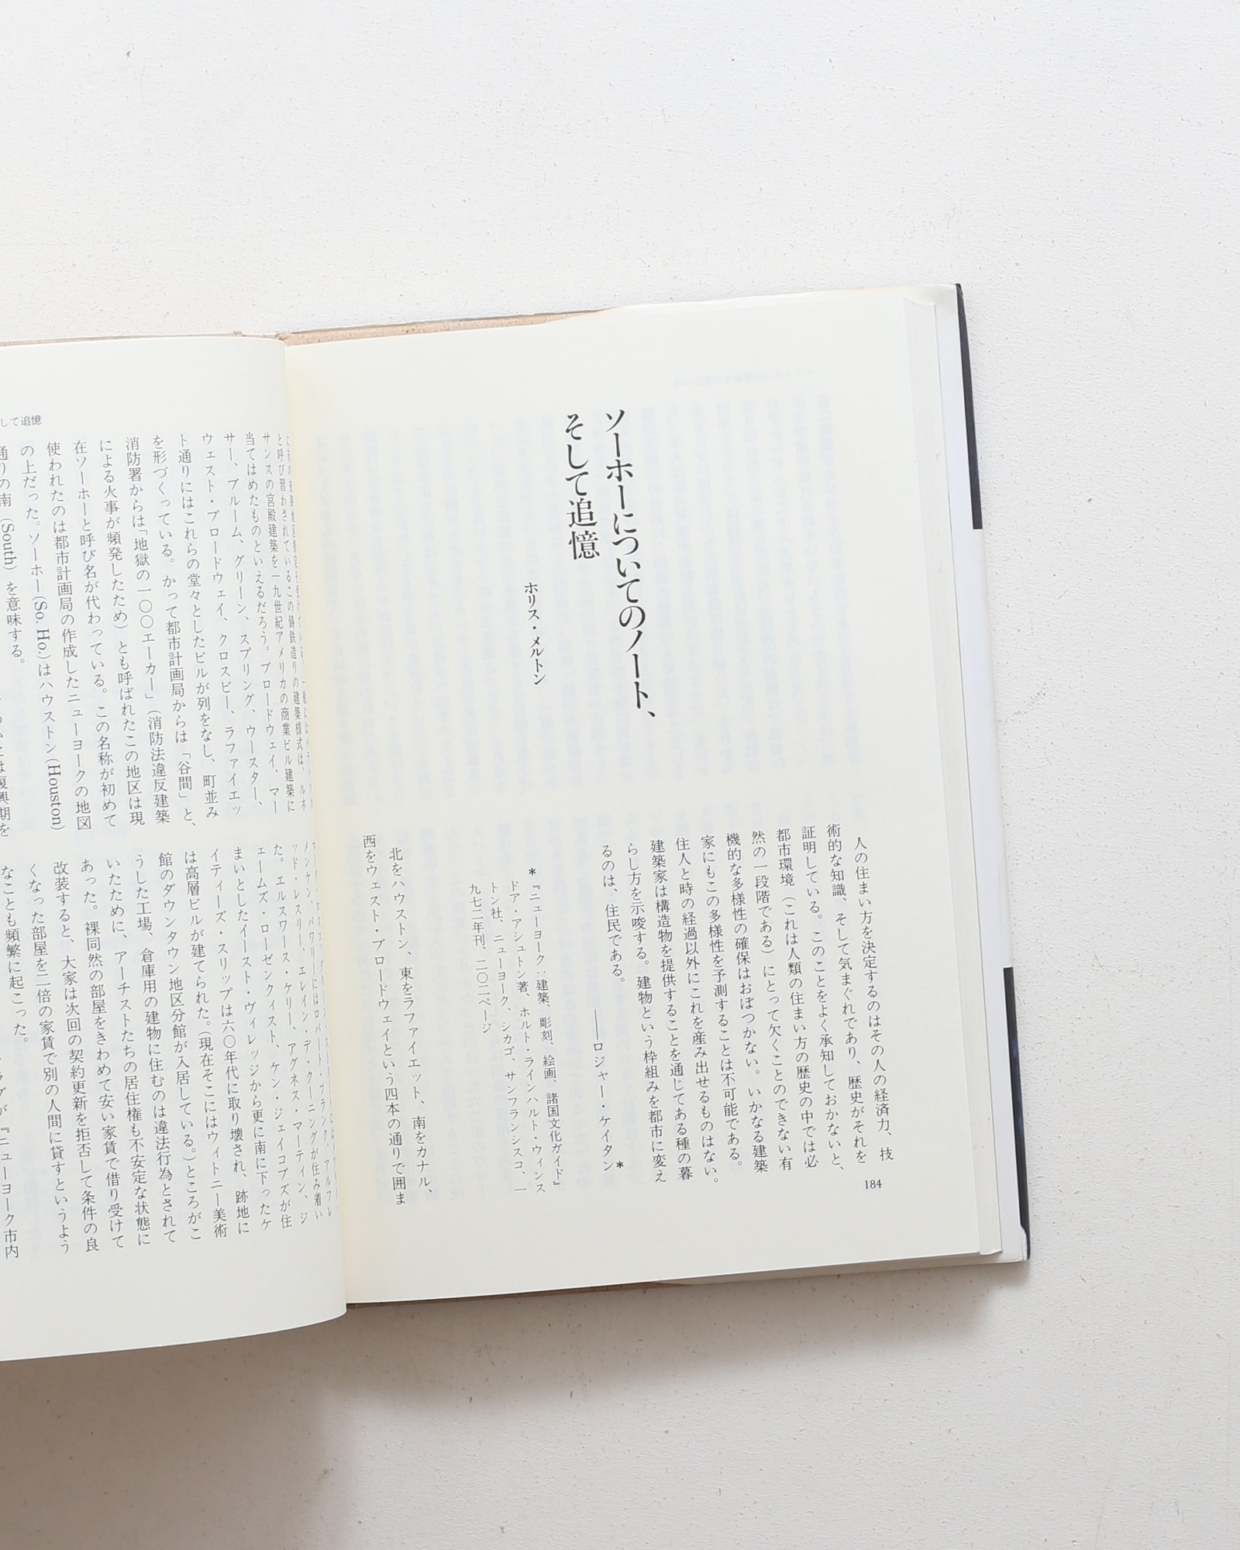 ソーホーについてのノート、
そして追憶
ホリス・メルトン
人の住まい方を決定するのはその人の経済力、技
術的な知識、そして気まぐれであり、歴史がそれを
証明している。このことをよく承知しておかないと、
都市環境（これは人類の住まい方の歴史の中では必
然の一段階である）にとって欠くことのできない有
機的な多様性の確保はおぼつかない。いかなる建築
家にもこの多様性を予測することは不可能である。
住人と時の経過以外にこれを産み出せるものはない。
建築家は構造物を提供することを通じてある種の暮
らし方を示唆する。建物という枠組みを都市に変え
るのは、住民である。
——ロジャー・ケイタン*
*『ニューヨーク：建築、彫刻、絵画、諸国文化ガイド』
ドア・アシュトン著、ホルト・ラインハルト・ウィンス
トン社、ニューヨーク、シカゴ、サンフランシスコ、一
九七二年刊、二〇二ページ
北をハウストン、東をラファイエット、南をカナル、
西をウェスト・ブロードウェイという四本の通りで囲ま
184
して追憶
と呼び習わされているこの鋳鉄造りの建築様式は、ルネ
サンスの宮殿建築を一九世紀アメリカの商業ビル建築に
当てはめたものといえるだろう。ブロードウェイ、マー
サー、ブルーム、グリーン、スプリング、ウースター、
ウェスト・ブロードウェイ、クロスビー、ラファイエッ
ト通りにはこれらの堂々としたビルが列をなし、町並み
を形づくっている。かって都市計画局からは「谷間」と、
消防署からは「地獄の一〇〇エーカー」（消防法違反建築
による火事が頻発したため）とも呼ばれたこの地区は現
在ソーホーと呼び名が代わっている。この名称が初めて
使われたのは都市計画局の作成したニューヨークの地図
の上だった。ソーホー(So. Ho.)はハウストン(Houston)
通りの南（South）を意味する。
は復興期を
ッド・レスリー、エレイン・デ・クーニングが住み着い
た。エルスワース・ケリー、アグネス・マーティン、ジ
ェームズ・ローゼンクィスト、ケン・ジェイコブズが住
まいとしたイースト・ヴィレッジから更に南に下ったケ
イティーズ・スリップは六〇年代に取り壊され、跡地に
は高層ビルが建てられた。（現在そこにはウィトニー美術
館のダウンタウン地区分館が入居している。）ところがこ
うした工場、倉庫用の建物に住むのは違法行為とされて
いたために、アーチストたちの居住権も不安定な状態に
あった。裸同然の部屋をきわめて安い家賃で借り受けて
改装すると、大家は次回の契約更新を拒否して条件の良
くなった部屋を二倍の家賃で別の人間に貸すというよう
なことも頻繁に起こった。
『ニューヨーク市内